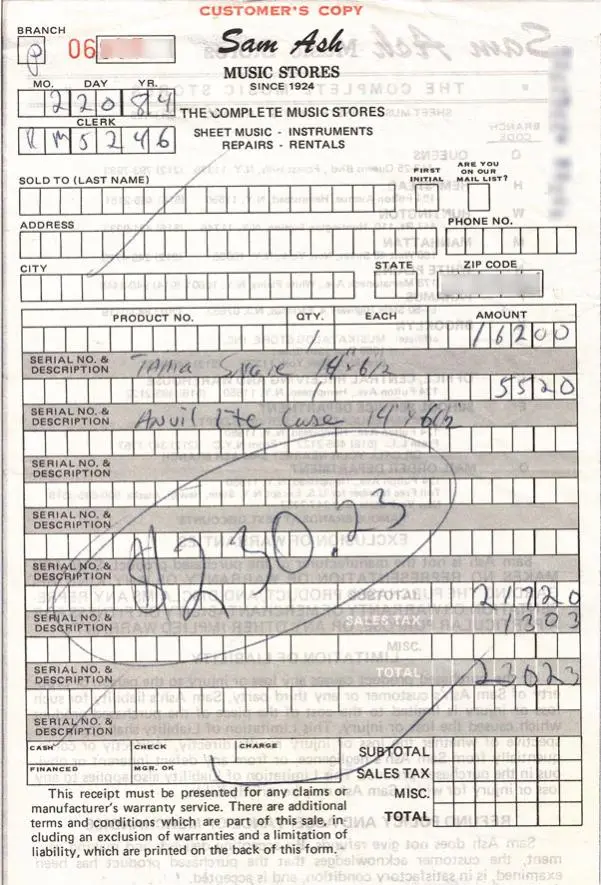 CUSTOMER'S COPY
BRANCH
06
Sam Ash
MUSIC STORES
SINCE 1924
MO. DAY YR.
2 20 84
THE COMPLETE MUSIC STORES
CLERK
RM5246
SHEET MUSIC - INSTRUMENTS
REPAIRS - RENTALS
SOLD TO (LAST NAME)
FIRST INITIAL
ARE YOU ON OUR MAIL LIST?
ADDRESS
PHONE NO.
CITY
STATE
ZIP CODE
PRODUCT NO. QTY. EACH AMOUNT
1 16200
SERIAL NO. & DESCRIPTION TAMA Snare 14"x6 1/2
5520
SERIAL NO. & DESCRIPTION Anvil lite Case 14 x 6 1/2
SERIAL NO. & DESCRIPTION
SERIAL NO. & DESCRIPTION
$230.23
SERIAL NO. & DESCRIPTION
SUBTOTAL 21720
SERIAL NO. & DESCRIPTION SALES TAX 1303
MISC.
SERIAL NO. & DESCRIPTION TOTAL 23023
SERIAL NO. & DESCRIPTION
CASH CHECK CHARGE
SUBTOTAL
FINANCED MGR. OK
SALES TAX
MISC.
TOTAL
This receipt must be presented for any claims or
manufacturer's warranty service. There are additional
terms and conditions which are part of this sale, in
cluding an exclusion of warranties and a limitation of
liability, which are printed on the back of this form.